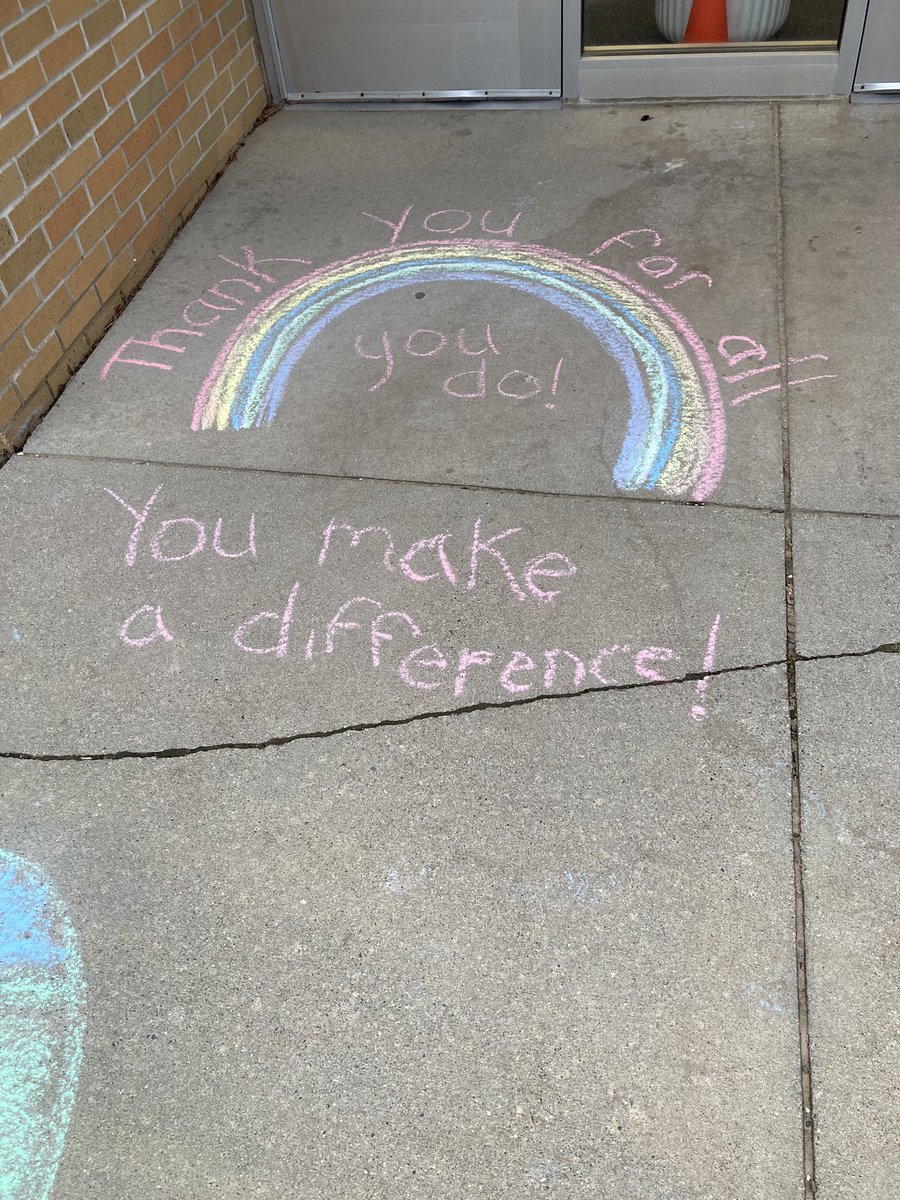 Thank you for all
you
do!
You make
a difference!